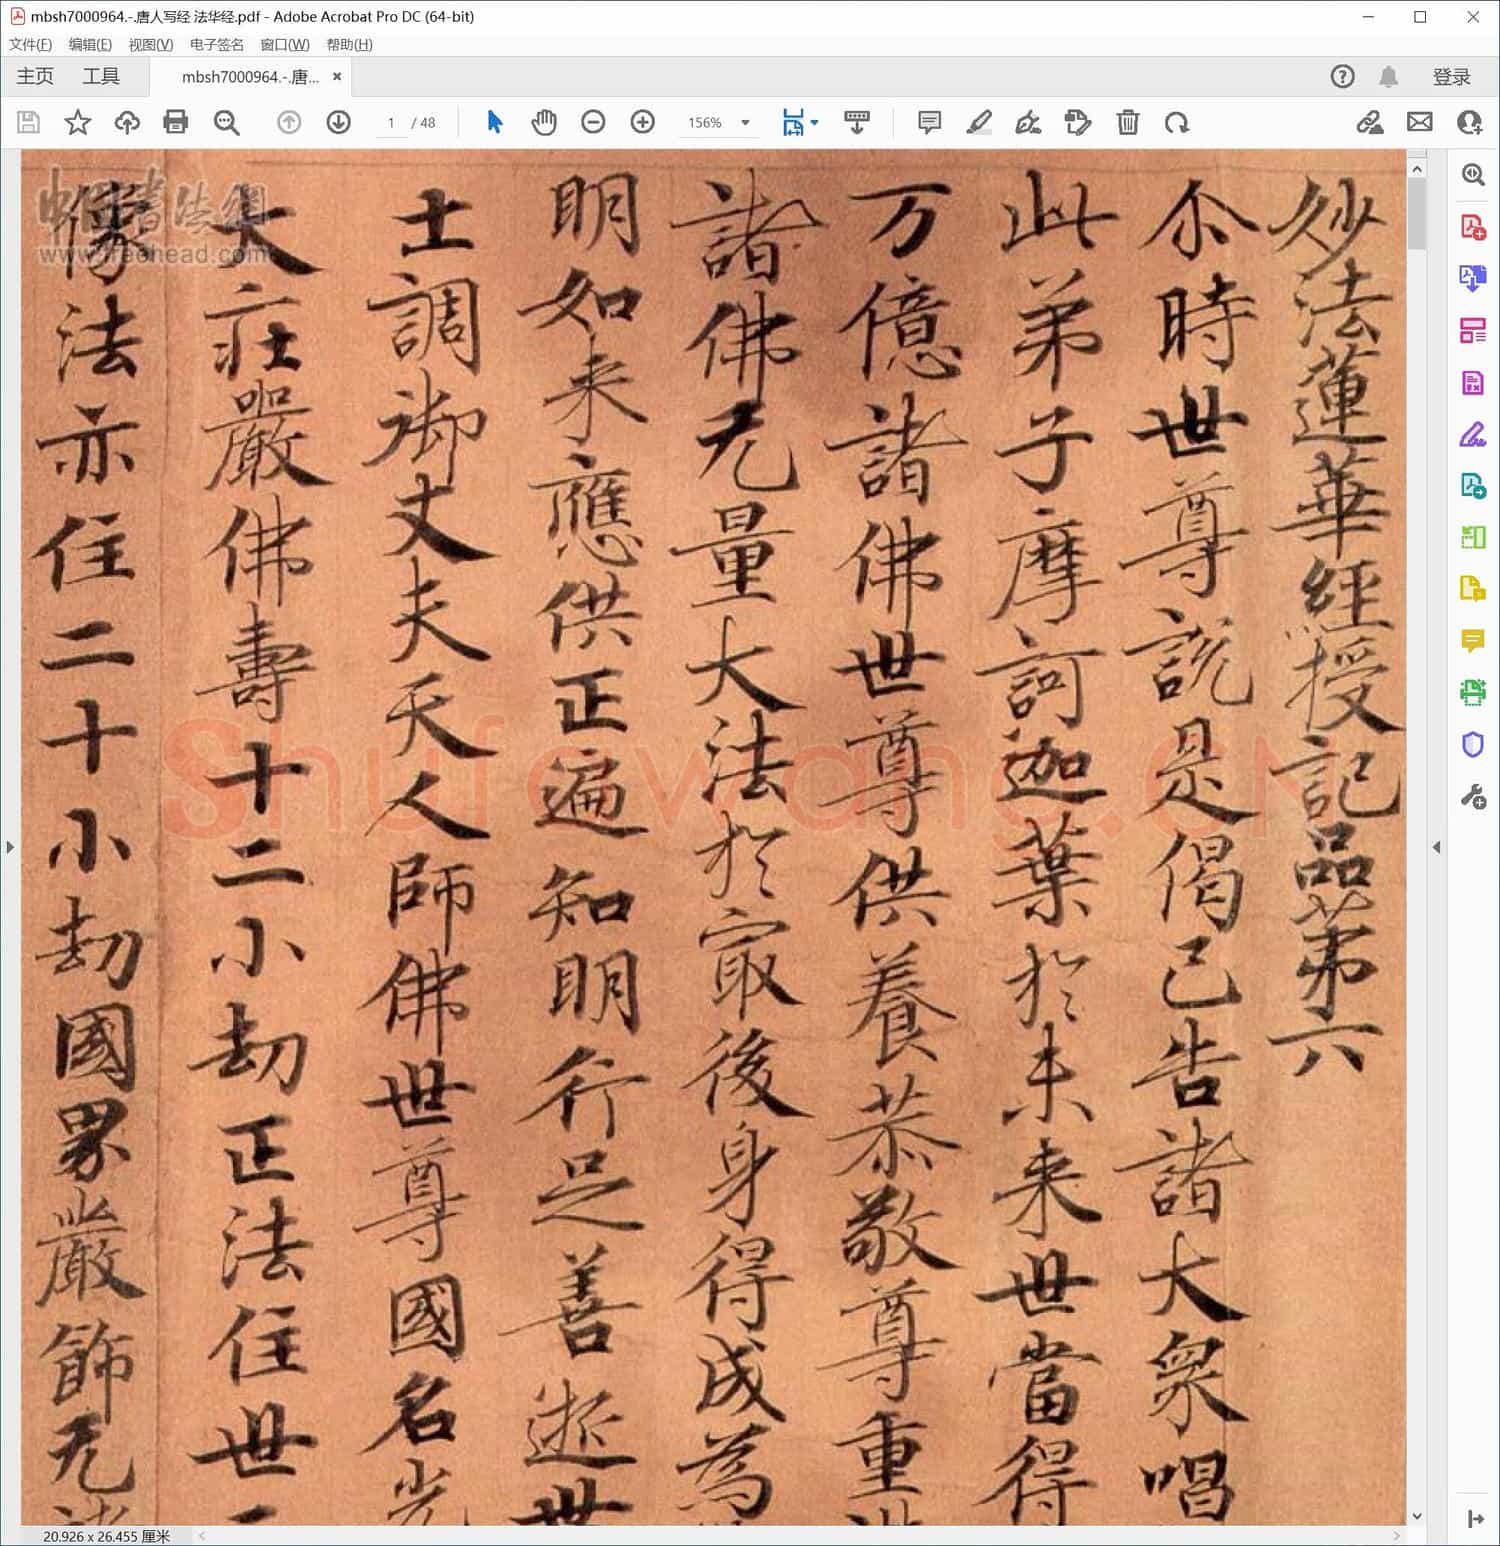 mbsh7000964.-.唐人写经 法华经.pdf - Adobe Acrobat Pro DC (64-bit)
文件(F) 编辑(E) 视图(V) 电子签名 窗口(W) 帮助(H)
主页 工具 mbsh7000964.-.唐... × 登录
1 / 48 156%
妙法蓮華經授記品苐六
尒時世尊說是偈已告諸大衆唱
此弟子摩訶迦葉於未来世當得
万億諸佛世尊供養恭敬尊重
諸佛无量大法於冣後身得成為
明如来應供正遍知明行足善逝世
士調御丈夫天人師佛世尊國名光
大莊嚴佛壽十二小劫正法住世二
像法亦住二十小劫國界嚴飾无諸
中国書法網
www.freehead.com
Shufawang.CN
20.926 x 26.455 厘米